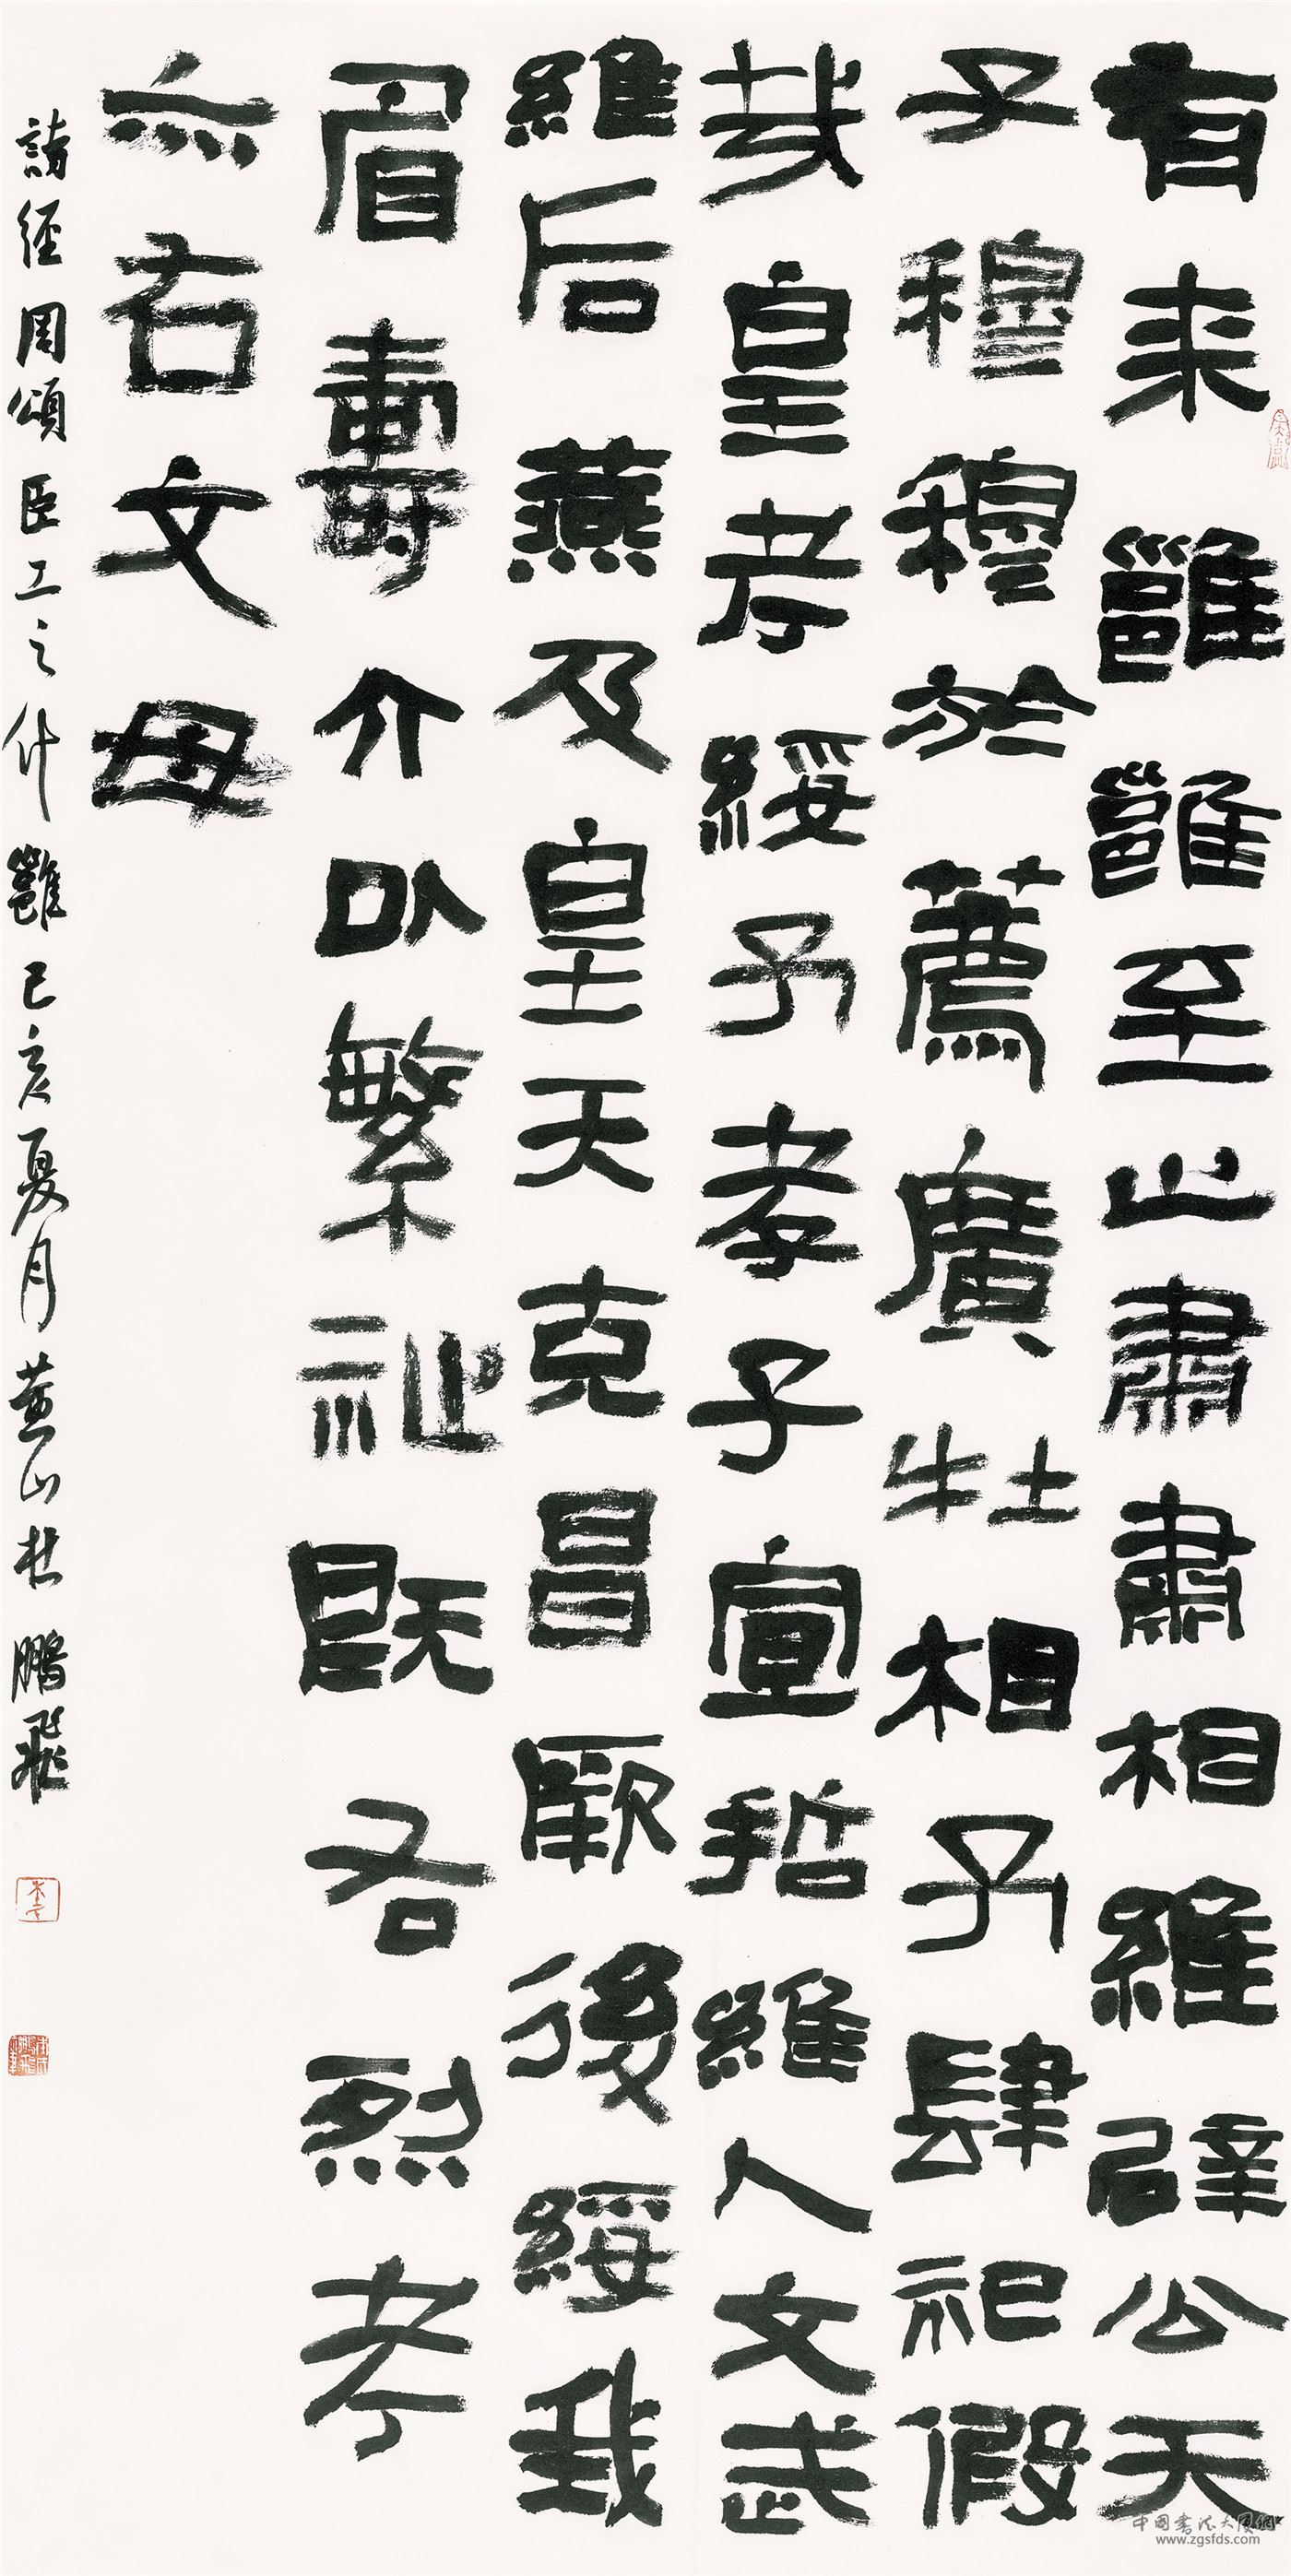 有来雝雝至止肅肅相維辟公天
子穆穆於薦廣牡相予肆祀假
哉皇考綏予孝子宣哲維人文武
維后燕及皇天克昌厥後綏我
眉壽介以繁祉既右烈考
亦右文母
詩經周頌臣工之什雝己亥夏月黄山杜鵬飛
www.zgsfds.com